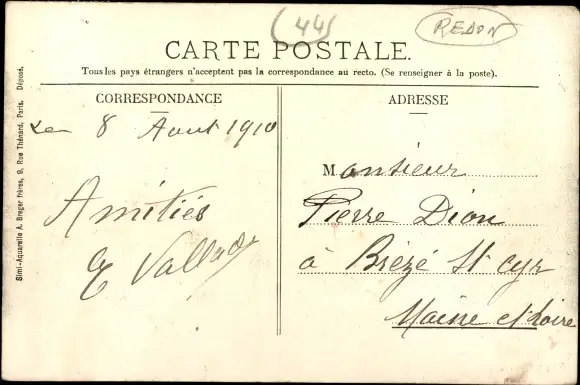 (44)
REDON
CARTE POSTALE.
Tous les pays étrangers n'acceptent pas la correspondance au recto. (Se renseigner à la poste).
CORRESPONDANCE
ADRESSE
Simi-Aquarelle A. Breger frères, 9, Rue Thénard, Paris. Déposé.
Le 8 Aout 1910
Amitiés
Monsieur
Pierre Dion
à Brézé St Cyr
Maine et Loire